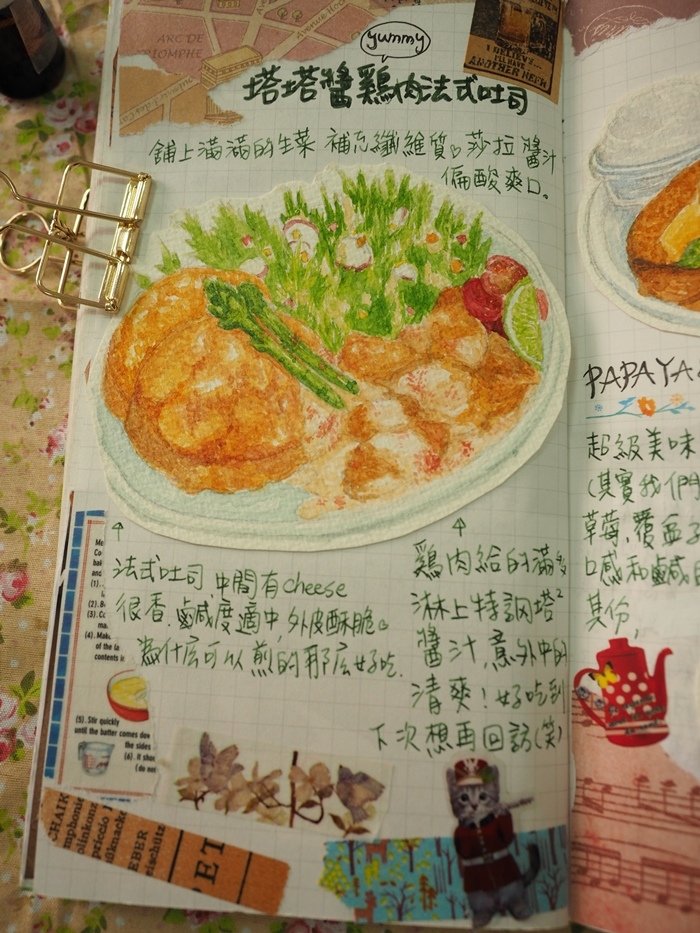 ARC DE
TRIOMPHE
Avenue Hoc
I BELIEVE...
I'LL HAVE
ANOTHER BEER
yummy
塔塔醬鷄肉法式吐司
舖上滿滿的生菜 補充纖維質。莎拉醬汁
偏酸爽口。
法式吐司,中間有cheese
很香,鹹鹹度適中,外皮酥脆。
為什麼可以煎的那麼好吃.
鷄肉給的滿多
淋上特調塔²
醬汁,意外中的
清爽!好吃到
下次想再回訪(笑)
PAPAYA
超級美味
(其實我們
草莓,覆盆子
口感和鹹
其份,
(1).
(2). B
(3). Co
(4). Make
of the la
contents in
(5). Stir quickly
until the batter comes dow
the sides
(6). It shou
(do not
CHAIK
mphonie
olinkonz
priccio
üßknack
EBER
eischütz
PET